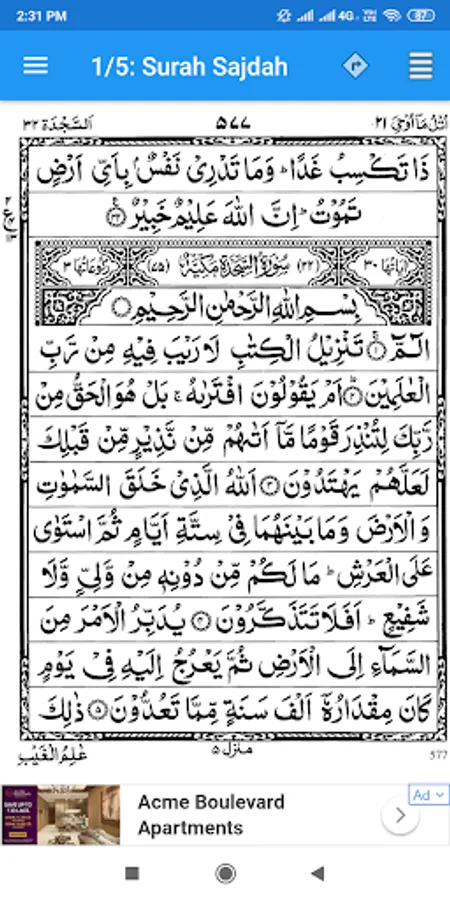 2:31 PM 4G VoLTE 87
1/5: Surah Sajdah
اَلسَّجْدَة ٣٢ ٥٧٧ اُتْلُ مَآ اُوْحِیَ ٢١
ذَا تَكْسِبُ غَدًا ؕ وَمَا تَدْرِیْ نَفْسٌۢ بِاَیِّ اَرْضٍ
تَمُوْتُ ؕ اِنَّ اللّٰهَ عَلِیْمٌ خَبِیْرٌ ﴿٣٤﴾
اٰیَاتُهَا ٣٠ (٣٢) سُوْرَةُ السَّجْدَةِ مَكِّیَّةٌ (٧٥) رُكُوْعَاتُهَا ٣
بِسْمِ اللّٰهِ الرَّحْمٰنِ الرَّحِیْمِ
الٓمّٓ ﴿١﴾ تَنْزِیْلُ الْكِتٰبِ لَا رَیْبَ فِیْهِ مِنْ رَّبِّ
الْعٰلَمِیْنَ ﴿٢﴾ اَمْ یَقُوْلُوْنَ افْتَرٰىهُ ۚ بَلْ هُوَ الْحَقُّ مِنْ
رَّبِّكَ لِتُنْذِرَ قَوْمًا مَّاۤ اَتٰىهُمْ مِّنْ نَّذِیْرٍ مِّنْ قَبْلِكَ
لَعَلَّهُمْ یَهْتَدُوْنَ ﴿٣﴾ اَللّٰهُ الَّذِیْ خَلَقَ السَّمٰوٰتِ
وَالْاَرْضَ وَمَا بَیْنَهُمَا فِیْ سِتَّةِ اَیَّامٍ ثُمَّ اسْتَوٰی
عَلَی الْعَرْشِ ؕ مَا لَكُمْ مِّنْ دُوْنِهٖ مِنْ وَّلِیٍّ وَّلَا
شَفِیْعٍ ؕ اَفَلَا تَتَذَكَّرُوْنَ ﴿٤﴾ یُدَبِّرُ الْاَمْرَ مِنَ
السَّمَآءِ اِلَی الْاَرْضِ ثُمَّ یَعْرُجُ اِلَیْهِ فِیْ یَوْمٍ
كَانَ مِقْدَارُهٗۤ اَلْفَ سَنَةٍ مِّمَّا تَعُدُّوْنَ ﴿٥﴾ ذٰلِكَ
عٰلِمُ الْغَیْبِ منزل ٥ 577
Ad
Acme Boulevard
Apartments